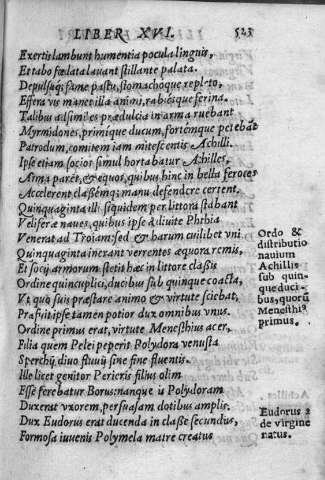 LIBER XVI. 523
Exertis lambunt humentia pocula linguis,
Et tabo fœdata lauant stillante palata.
Depulsaq; fame pastu, stomachoque repleto,
Effera vis manet illa animi, rabiesque ferina.
Talibus assimiles prædulcia in arma ruebant
Myrmidones, primique ducum, fortémque petebãt
Patrodum, comitem iam mitescentis Achilli.
Ipse etiam socios simul hortabatur Achilles,
Arma parēt, & equos, quibus hinc in bella feroces
Accelerent classémq; manu defendere certent.
Quinquaginta illi siquidem per littora stabant
Veliferæ naues, quibus ipse à diuite Phthia
Venerat ad Troiam: sed & harum cuilibet vni
Quinquaginta inerant verrentes æquora remis,
Et socij armorum stetit hæc in littore classis
Ordine quincuplici, ducibus sub quinque coacta,
Vt quo suis præstare animo & virtute sciebat,
Præfuit ipse tamen potior dux omnibus vnus.
Ordine primus erat, virtute Menesthius acer,
Filia quem Pelei peperit Polydora venusta
Sperchij, diuo fluuij sine fine fluentis.
Ille licet genitor Pericris filius olim
Esse ferebatur Borus: nanque is Polydoram
Duxerat vxorem, persuasam dotibus amplis.
Dux Eudorus erat ducenda in classe secundus,
Formosa iuuenis Polymela matre creatus
Ordo &
distributio
nauium
Achillis
sub quin-
que duci-
bus, quorũ
Menesthi9
primus.
Eudorus 2
de virgine
natus.